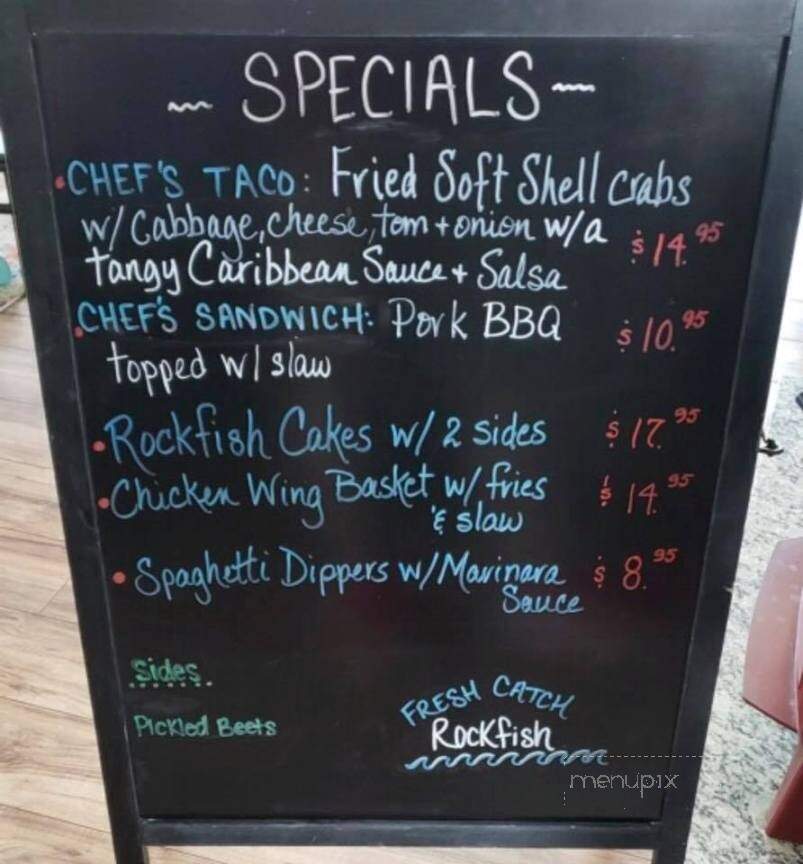 ~ SPECIALS ~
• CHEF'S TACO: Fried Soft Shell crabs
w/ Cabbage, cheese, tom + onion w/a
tangy Caribbean Sauce + Salsa $14.95
• CHEF'S SANDWICH: Pork BBQ $10.95
topped w/ slaw
• Rockfish Cakes w/ 2 sides $17.95
• Chicken Wing Basket w/ fries $14.95
& slaw
• Spaghetti Dippers w/ Marinara $8.95
Sauce
Sides
Pickled Beets
FRESH CATCH
Rockfish
menupix